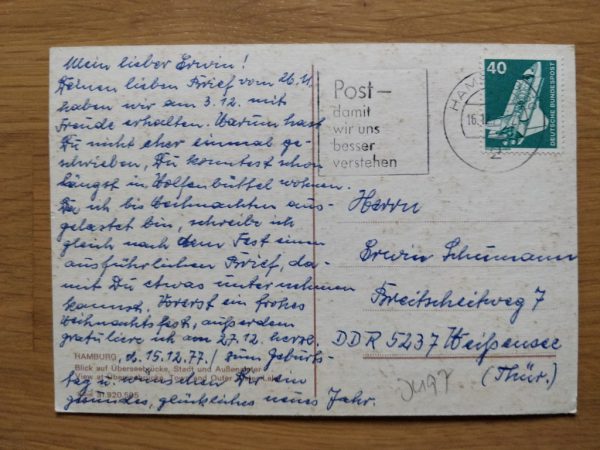 Mein lieber Erwin!
Deinen lieben Brief vom 26.11.
haben wir am 3.12. mit
Freude erhalten. Warum hast
Du nicht eher einmal ge-
schrieben, Du konntest schon
längst in Wolfenbüttel wohnen.
Da ich bis Weihnachten aus-
gelastet bin, schreibe ich
gleich nach dem Fest einen
ausführlichen Brief, da-
mit Du etwas unternehmen
kannst. Vorerst ein frohes
Weihnachtsfest, außerdem
gratuliere ich am 27.12. herzl.
d. 15.12.77./ zum Geburts-
tag u. Dir ein
gesundes, glückliches neues Jahr.
HAMBURG
Blick auf Überseebrücke, Stadt und Außenalster
View at Overseabridge, Town and Outer Alster Lake
Post –
damit
wir uns
besser
verstehen
HAM
16.1
2
40
DEUTSCHE BUNDESPOST
Herrn
Erwin Schumann
Breitscheitweg 7
DDR 5237 Weißensee
(Thür.)